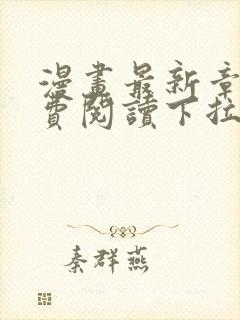 漫畫最新章
費閱讀下拉
秦群燕